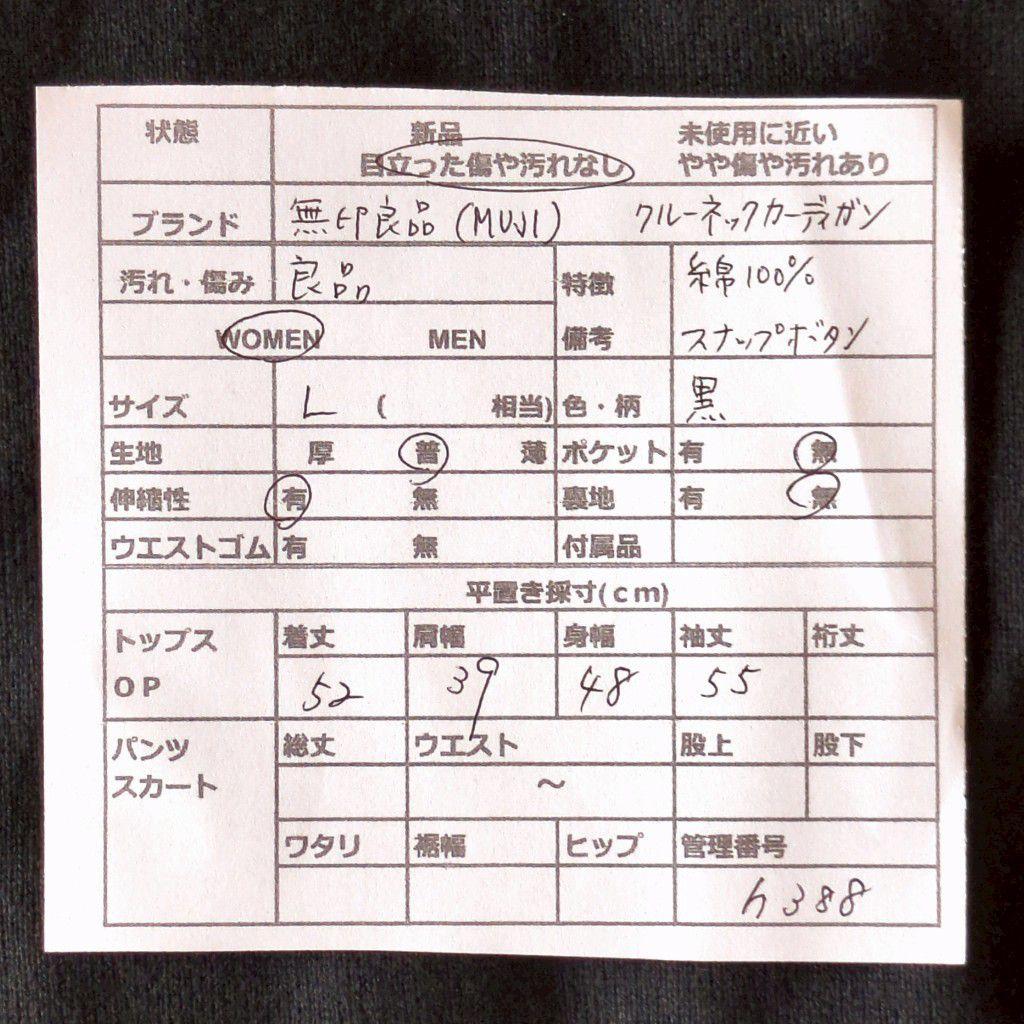 状態 新品 未使用に近い
目立った傷や汚れなし やや傷や汚れあり
ブランド 無印良品(MUJI) クルーネックカーディガン
汚れ・傷み 良品 特徴 綿100%
WOMEN MEN 備考 スナップボタン
サイズ L ( 相当) 色・柄 黒
生地 厚 普 薄 ポケット 有 無
伸縮性 有 無 裏地 有 無
ウエストゴム 有 無 付属品
平置き採寸(cm)
トップス 着丈 肩幅 身幅 袖丈 裄丈
OP 52 39 48 55
パンツ 総丈 ウエスト 股上 股下
スカート ～
ワタリ 裾幅 ヒップ 管理番号
h388